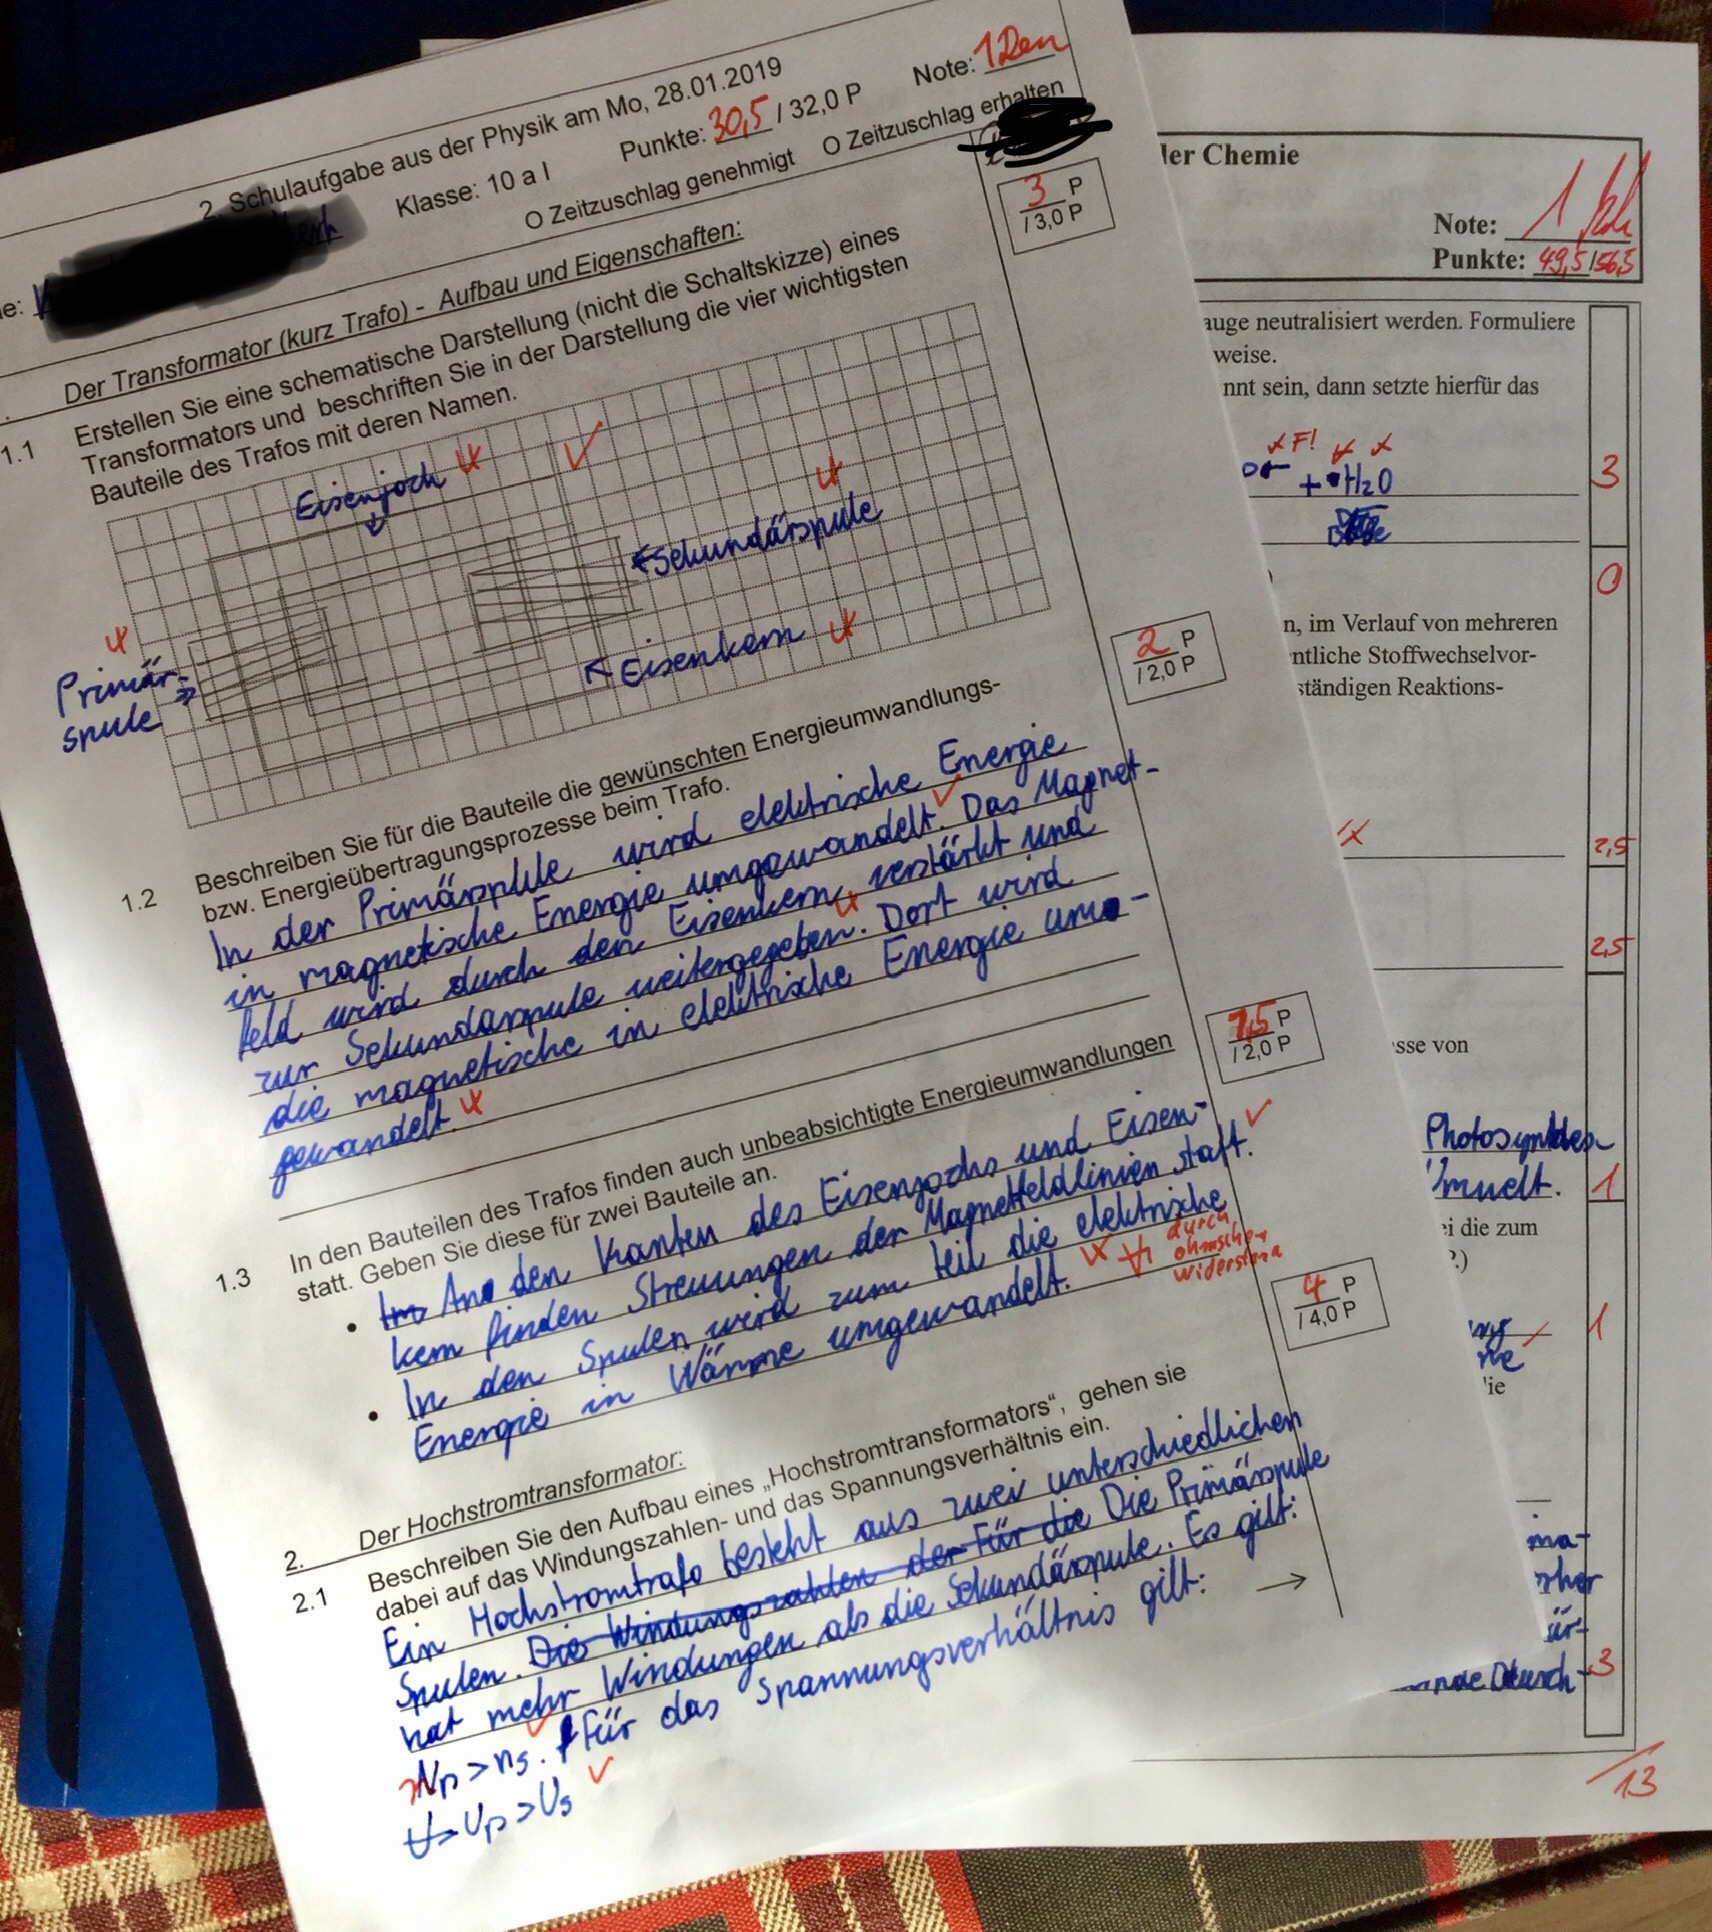 2. Schulaufgabe aus der Physik am Mo, 28.01.2019
Klasse: 10 a I
Punkte: 30,5 / 32,0 P
Note: 1
O Zeitzuschlag genehmigt
O Zeitzuschlag erhalten
Der Transformator (kurz Trafo) - Aufbau und Eigenschaften:
3 P
/ 3,0 P
1.1 Erstellen Sie eine schematische Darstellung (nicht die Schaltskizze) eines
Transformators und beschriften Sie in der Darstellung die vier wichtigsten
Bauteile des Trafos mit deren Namen.
Eisenjoch
Sekundärspule
Eisenkern
Primär-
spule
2 P
/ 2,0 P
1.2 Beschreiben Sie für die Bauteile die gewünschten Energieumwandlungs-
bzw. Energieübertragungsprozesse beim Trafo.
In der Primärspule wird elektrische Energie
in magnetische Energie umgewandelt. Das Magnet-
feld wird durch den Eisenkern verstärkt und
zur Sekundärspule weitergegeben. Dort wird
die magnetische in elektrische Energie um-
gewandelt.
1,5 P
/ 2,0 P
1.3 In den Bauteilen des Trafos finden auch unbeabsichtigte Energieumwandlungen
statt. Geben Sie diese für zwei Bauteile an.
• An den Kanten des Eisenjochs und Eisen-
kern finden Streuungen der Magnetfeldlinien statt.
• In den Spulen wird zum teil die elektrische
Energie in Wärme umgewandelt.
durch
ohmschen
Widerstand
4 P
/ 4,0 P
2. Der Hochstromtransformator:
2.1 Beschreiben Sie den Aufbau eines „Hochstromtransformators“, gehen sie
dabei auf das Windungszahlen- und das Spannungsverhältnis ein.
Ein Hochstromtrafo besteht aus zwei unterschiedlichen
Spulen. Die Windungszahlen der Für die Die Primärspule
hat mehr Windungen als die Sekundärspule. Es gilt:
Np > ns. Für das Spannungsverhältnis gilt: →
Up > Us
ler Chemie
Note: 1
Punkte: 49,5/56,5
auge neutralisiert werden. Formuliere
weise.
nnt sein, dann setzte hierfür das
F!
+ H₂O
3
0
n, im Verlauf von mehreren
ntliche Stoffwechselvor-
ständigen Reaktions-
2,5
2,5
sse von
Photosynthese
Umwelt.
1
ei die zum
?.)
1
lie
ma-
ür-
Dursch-
3
/13